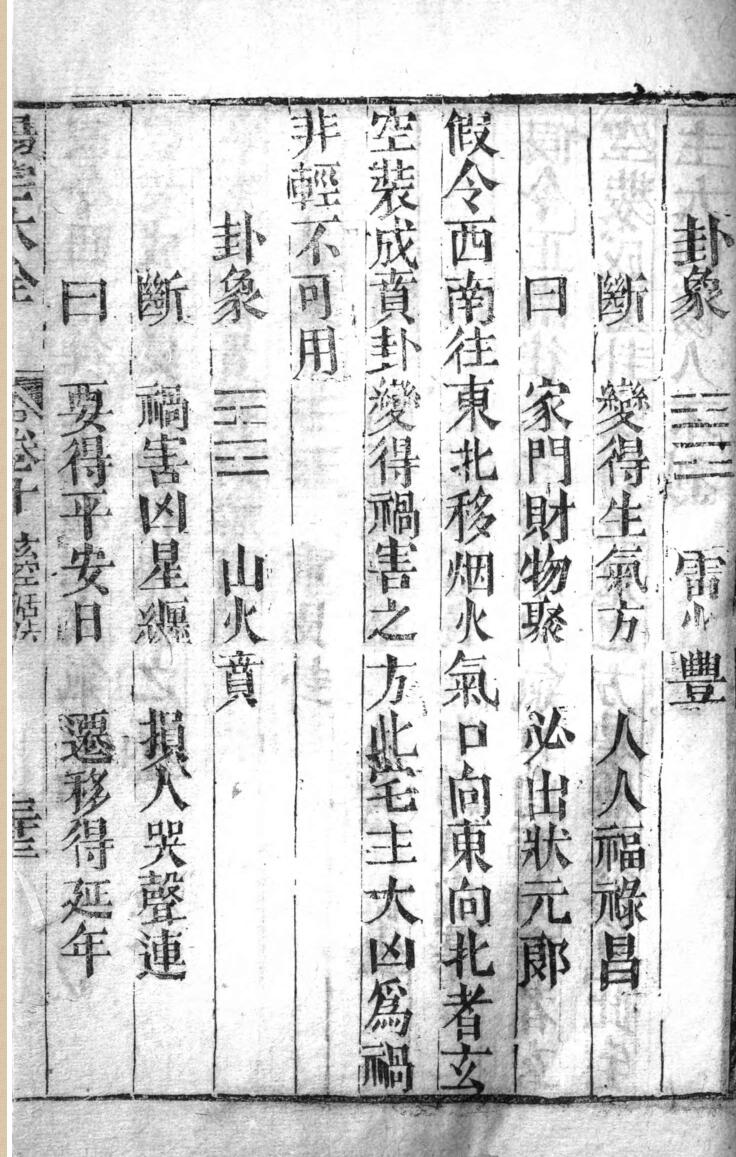 卦象 ䷶ 雷火豐
斷 變得生氣方 人人福祿昌
曰 家門財物聚 必出狀元郎
假令西南往東北移烟火氣口向東向北者玄
空裝成賁卦變得禍害之方此宅主大凶爲禍
非輕不可用
卦象 ䷕ 山火賁
斷 禍害凶星纏 損人哭聲連
曰 要得平安日 遷移得延年
大全 卷十 玄空活法